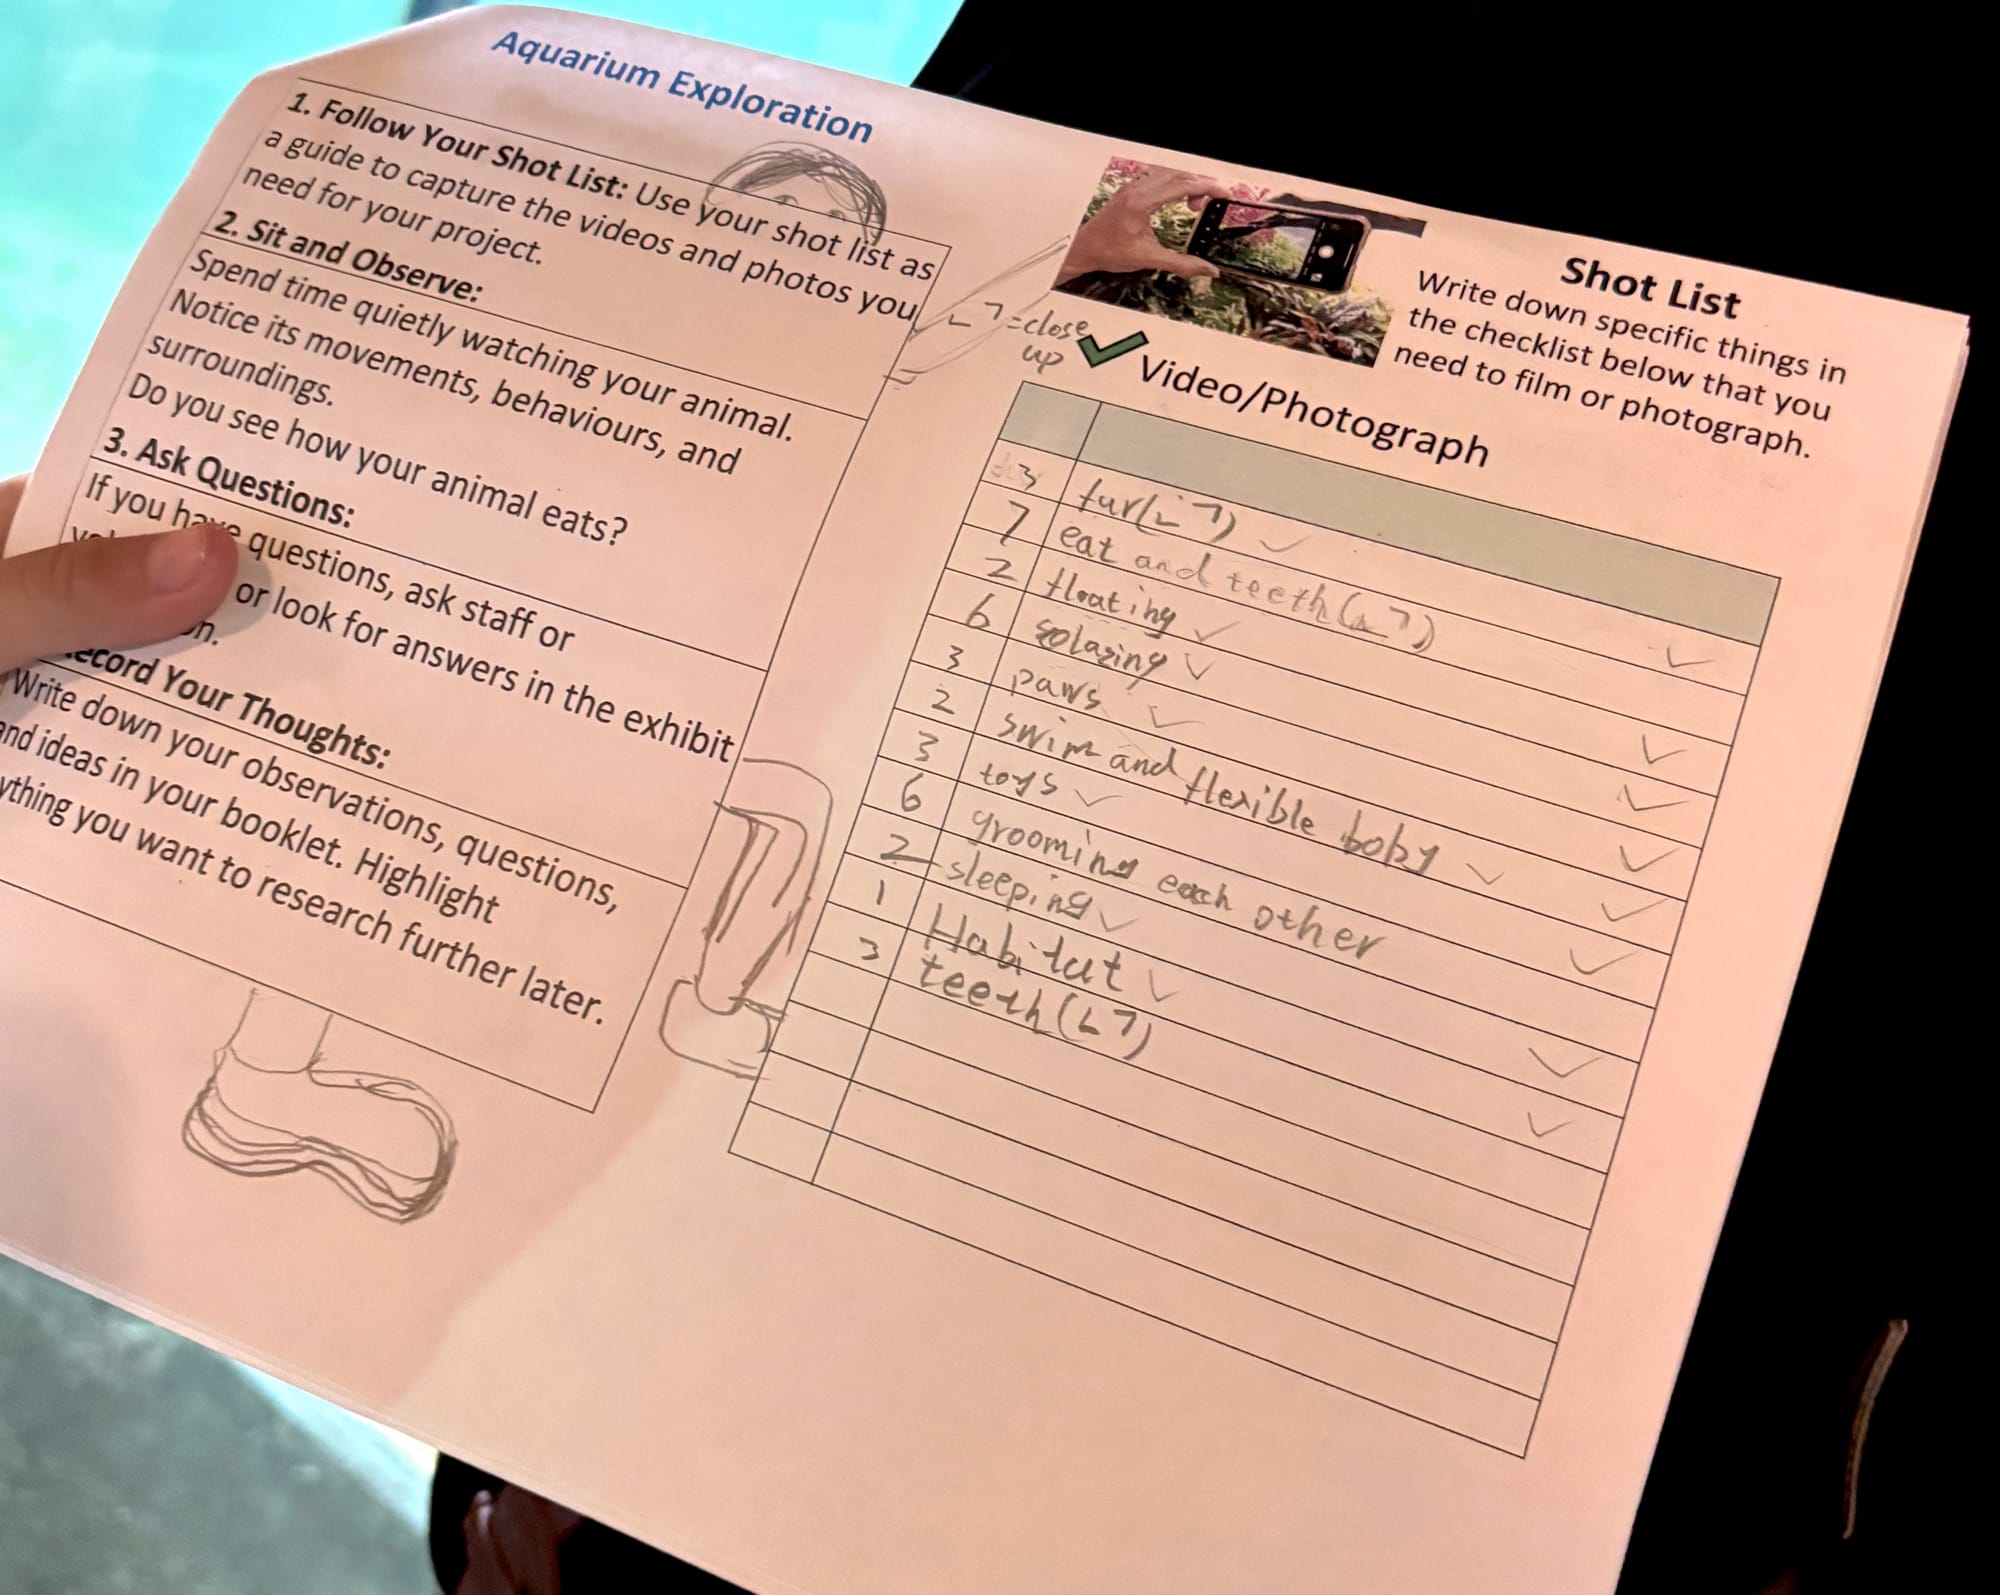 Aquarium Exploration
1. Follow Your Shot List: Use your shot list as
a guide to capture the videos and photos you
need for your project.
2. Sit and Observe:
Spend time quietly watching your animal.
Notice its movements, behaviours, and
surroundings.
Do you see how your animal eats?
3. Ask Questions:
If you have questions, ask staff or
or look for answers in the exhibit
Record Your Thoughts:
Write down your observations, questions,
and ideas in your booklet. Highlight
anything you want to research further later.
Shot List
Write down specific things in
the checklist below that you
need to film or photograph.
=close
up
Video/Photograph
3 fur(∟ ㄱ)
7 eat and teeth(∟ㄱ)
2 floating
6
3 paws
2 swim and flexible boby
3 toys
6 grooming each other
2 sleeping
1 Habitat
3 teeth(∟ㄱ)